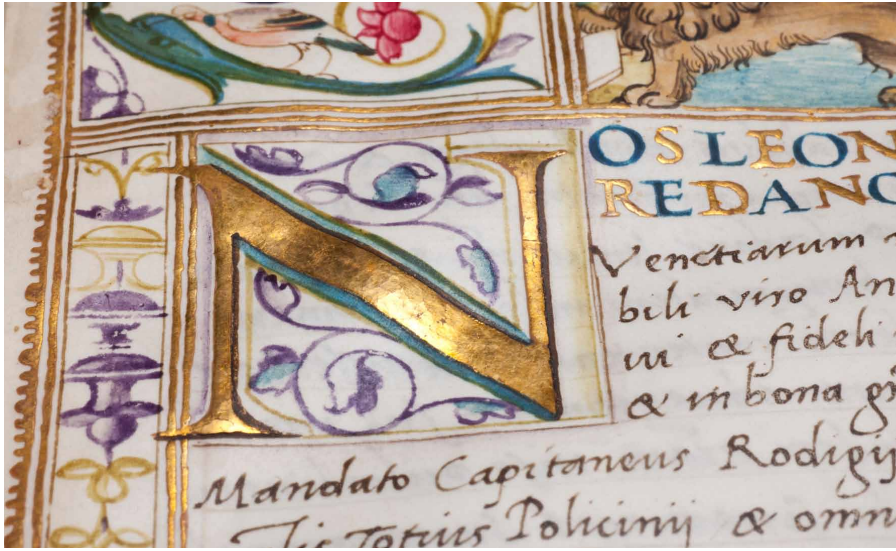 NOS LEON
REDANO
Venetiarum
bili viro An
ivi & fideli
& in bona g
Mandato Capitaneus Rodigii
Totius Policinii & omn